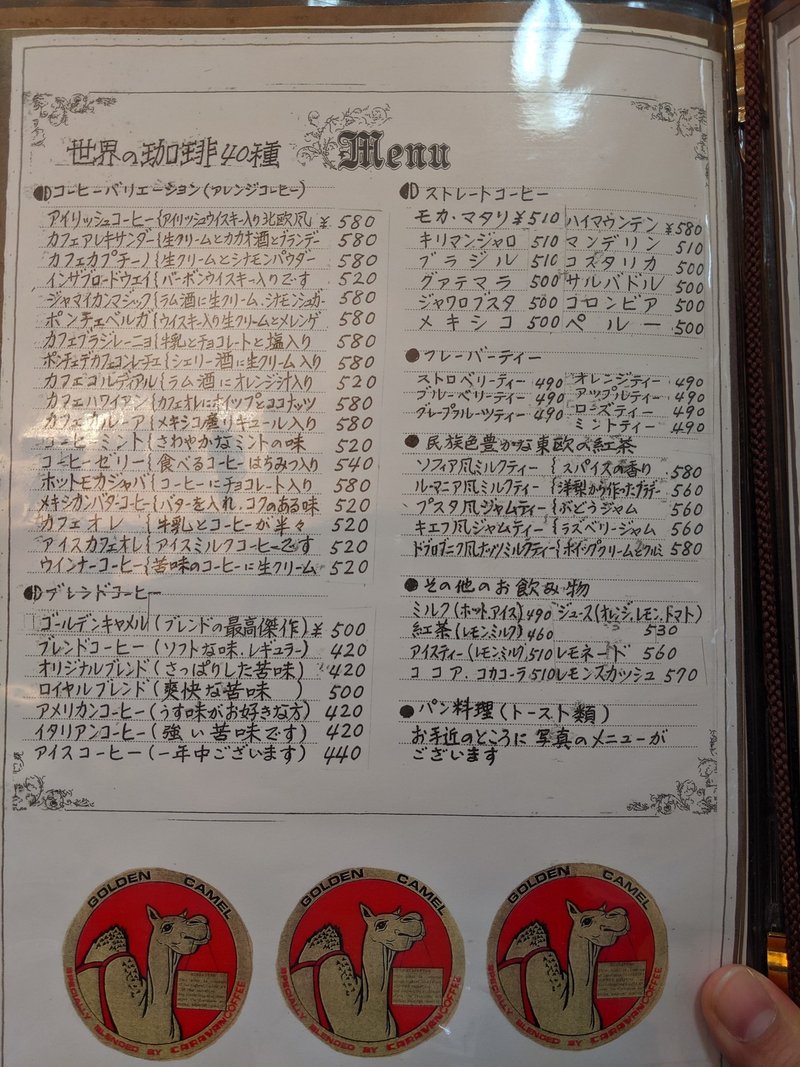 世界の珈琲40種 Menu
コーヒーバリエーション(アレンジコーヒー)
アイリッシュコーヒー{アイリッシュウイスキー入り北欧風 ¥580
カフェアレキサンダー{生クリームとカカオ酒とブランデー 580
カフェカプチーノ{生クリームとシナモンパウダー 580
インザブロードウエイ{バーボンウイスキー入りです 520
ジャマイカンマジック{ラム酒に生クリーム、シナモンシュガー 580
ポンチェベルガ{ウイスキー入り生クリームとメレンゲ 580
カフェブラジレーニョ{牛乳とチョコレートと塩入り 580
ポンチェデカフェコンレーチェ{シェリー酒に生クリーム入り 580
カフェコルディアル{ラム酒にオレンジ汁入り 520
カフェハワイアン{カフェオレにホイップとココナッツ 580
カフェカルーア{メキシコ産リキュール入り 580
コーヒーミント{さわやかなミントの味 520
コーヒーゼリー{食べるコーヒーはちみつ入り 540
ホットモカジャバ{コーヒーにチョコレート入り 580
メキシカンバターコーヒー{バターを入れ、コクのある味 520
カフェオレ{牛乳とコーヒーが半々 520
アイスカフェオレ{アイスミルクコーヒーです 520
ウインナーコーヒー{苦味のコーヒーに生クリーム 520
ブレンドコーヒー
ゴールデンキャメル(ブレンドの最高傑作)¥500
ブレンドコーヒー(ソフトな味、レギュラー) 420
オリジナルブレンド(さっぱりした苦味) 420
ロイヤルブレンド(爽快な苦味) 500
アメリカンコーヒー(うす味がお好きな方) 420
イタリアンコーヒー(強い苦味です) 420
アイスコーヒー(一年中ございます) 440
ストレートコーヒー
モカ・マタリ ¥510 ハイマウンテン ¥580
キリマンジャロ 510 マンデリン 510
ブラジル 510 コスタリカ 500
グァテマラ 500 サルバドル 500
ジャワロブスタ 500 コロンビア 500
メキシコ 500 ペルー 500
フレーバーティー
ストロベリーティー 490 オレンジティー 490
ブルーベリーティー 490 アップルティー 490
グレープフルーツティー 490 ローズティー 490
ミントティー 490
民族色豊かな東欧の紅茶
ソフィア風ミルクティー{スパイスの香り 580
ルーマニア風ミルクティー{洋梨から作ったブランデー 560
プスタ風ジャムティー{ぶどうジャム 560
キエフ風ジャムティー{ラズベリージャム 560
ドブロブニク風ナッツミルクティー{ホイップクリームとクルミ 580
その他のお飲み物
ミルク(ホット、アイス) 490 ジュース(オレンジ、レモン、トマト)
紅茶(レモン、ミルク) 460 530
アイスティー(レモン、ミルク) 510 レモネード 560
ココア、コカコーラ 510 レモンスカッシュ 570
パン料理(トースト類)
お手近のところに写真のメニューが
ございます
GOLDEN CAMEL
SPECIALLY BLENDED BY CARAVAN COFFEE
GOLDEN CAMEL
SPECIALLY BLENDED BY CARAVAN COFFEE
GOLDEN CAMEL
SPECIALLY BLENDED BY CARAVAN COFFEE